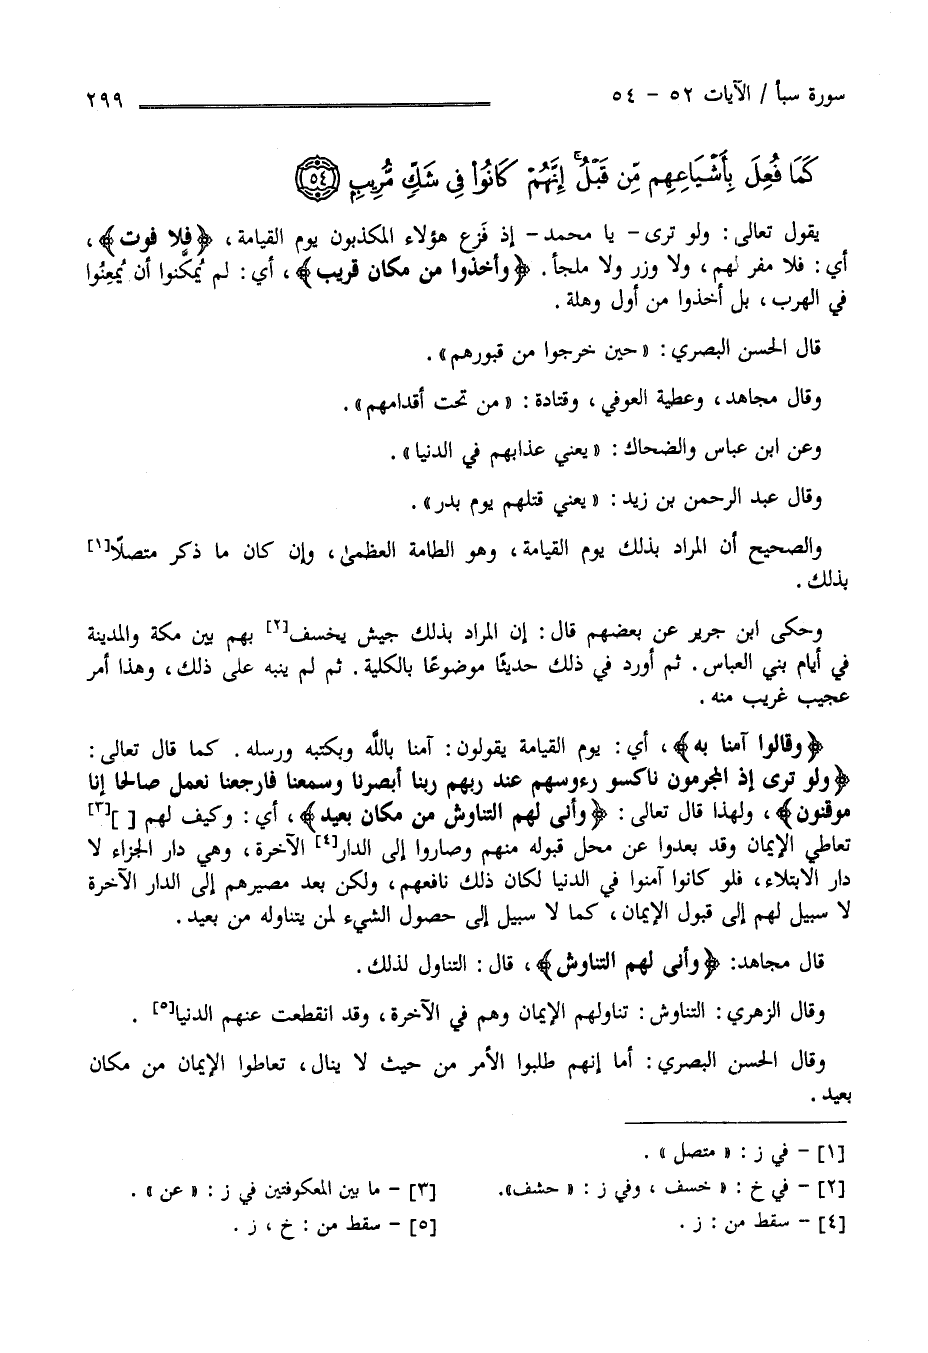 سورة سبأ / الآيات ٥٢ - ٥٤ ٢٩٩
كَمَا فُعِلَ بِأَشْيَاعِهِم مِّن قَبْلُ ۚ إِنَّهُمْ كَانُوا۟ فِى شَكٍّ مُّرِيبٍۭ ٥٤
يقول تعالى : ولو ترى - يا محمد - إذ فَزع هؤلاء المكذبون يوم القيامة ، ﴿فلا فوت﴾ ،
أي : فلا مفر لهم ، ولا وزر ولا ملجأ . ﴿وأخذوا من مكان قريب﴾ ، أي : لم يُمكَّنوا أن يُمعِنُوا
في الهرب ، بل أخذوا من أول وهلة .
قال الحسن البصري : « حين خرجوا من قبورهم » .
وقال مجاهد ، وعطية العوفي ، وقتادة : « من تحت أقدامهم » .
وعن ابن عباس والضحاك : « يعني عذابهم في الدنيا » .
وقال عبد الرحمن بن زيد : « يعني قتلهم يوم بدر » .
والصحيح أن المراد بذلك يوم القيامة ، وهو الطامة العظمىٰ ، وإن كان ما ذكر متصلًا[١]
بذلك .
وحكى ابن جرير عن بعضهم قال : إن المراد بذلك جيش يخسف[٢] بهم بين مكة والمدينة
في أيام بني العباس . ثم أورد في ذلك حديثًا موضوعًا بالكلية . ثم لم ينبه على ذلك ، وهذا أمر
عجيب غريب منه .
﴿وقالوا آمنا به﴾ ، أي : يوم القيامة يقولون : آمنا باللَّه وبكتبه ورسله . كما قال تعالى :
﴿ولو ترى إذ المجرمون ناكسو رءوسهم عند ربهم ربنا أبصرنا وسمعنا فارجعنا نعمل صالحا إنا
موقنون﴾ ، ولهذا قال تعالى : ﴿وأنى لهم التناوش من مكان بعيد﴾ ، أي : وكيف لهم [ ][٣]
تعاطي الإيمان وقد بعدوا عن محل قبوله منهم وصاروا إلى الدار[٤] الآخرة ، وهي دار الجزاء لا
دار الابتلاء ، فلو كانوا آمنوا في الدنيا لكان ذلك نافعهم ، ولكن بعد مصيرهم إلى الدار الآخرة
لا سبيل لهم إلى قبول الإيمان ، كما لا سبيل إلى حصول الشيء لمن يتناوله من بعيد .
قال مجاهد : ﴿وأنى لهم التناوش﴾ ، قال : التناول لذلك .
وقال الزهري : التناوش : تناولهم الإيمان وهم في الآخرة ، وقد انقطعت عنهم الدنيا[٥] .
وقال الحسن البصري : أما إنهم طلبوا الأمر من حيث لا ينال ، تعاطوا الإيمان من مكان
بعيد .
[١] - في ز : « متصل » .
[٢] - في خ : « خسف ، وفي ز : « حشف» . [٣] - ما بين المعكوفتين في ز : « عن » .
[٤] - سقط من : ز . [٥] - سقط من : خ ، ز .